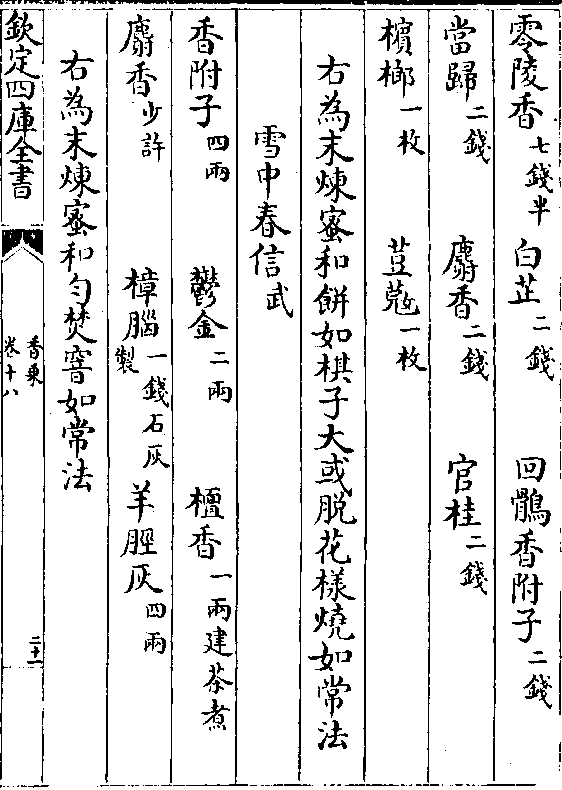 零陵香七錢半 白芷二錢 回鶻香附子二錢
當歸二錢 麝香二錢 官桂二錢
檳榔一枚 荳蔻一枚
右為末煉蜜和餅如棋子大或脱花様燒如常法
雪中春信武
香附子四兩 鬱金二兩 檀香一兩建茶煮
麝香少許 樟腦一錢石灰製 羊脛灰四兩
右為末煉蜜和勻焚窨如常法
欽定四庫全書 香乗 卷十八 二十一